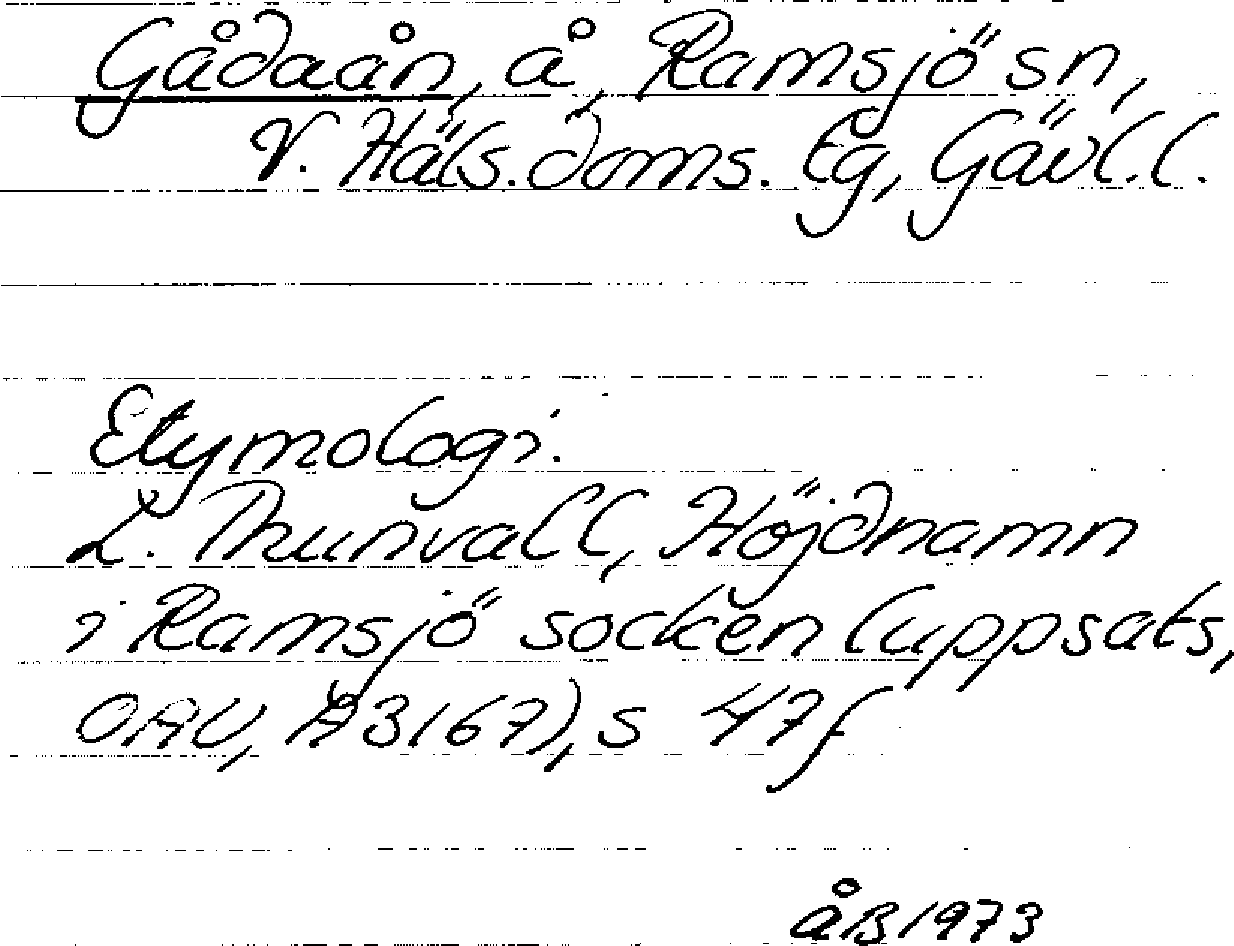 Gådaån, å, Ramsjö sn,
V. Häls. doms. tg, Gävl. l.
Etymologi.
L. Thunvall, Höjdnamn
i Ramsjö socken (uppsats,
OAU, A3167), s 47f
ÅB 1973